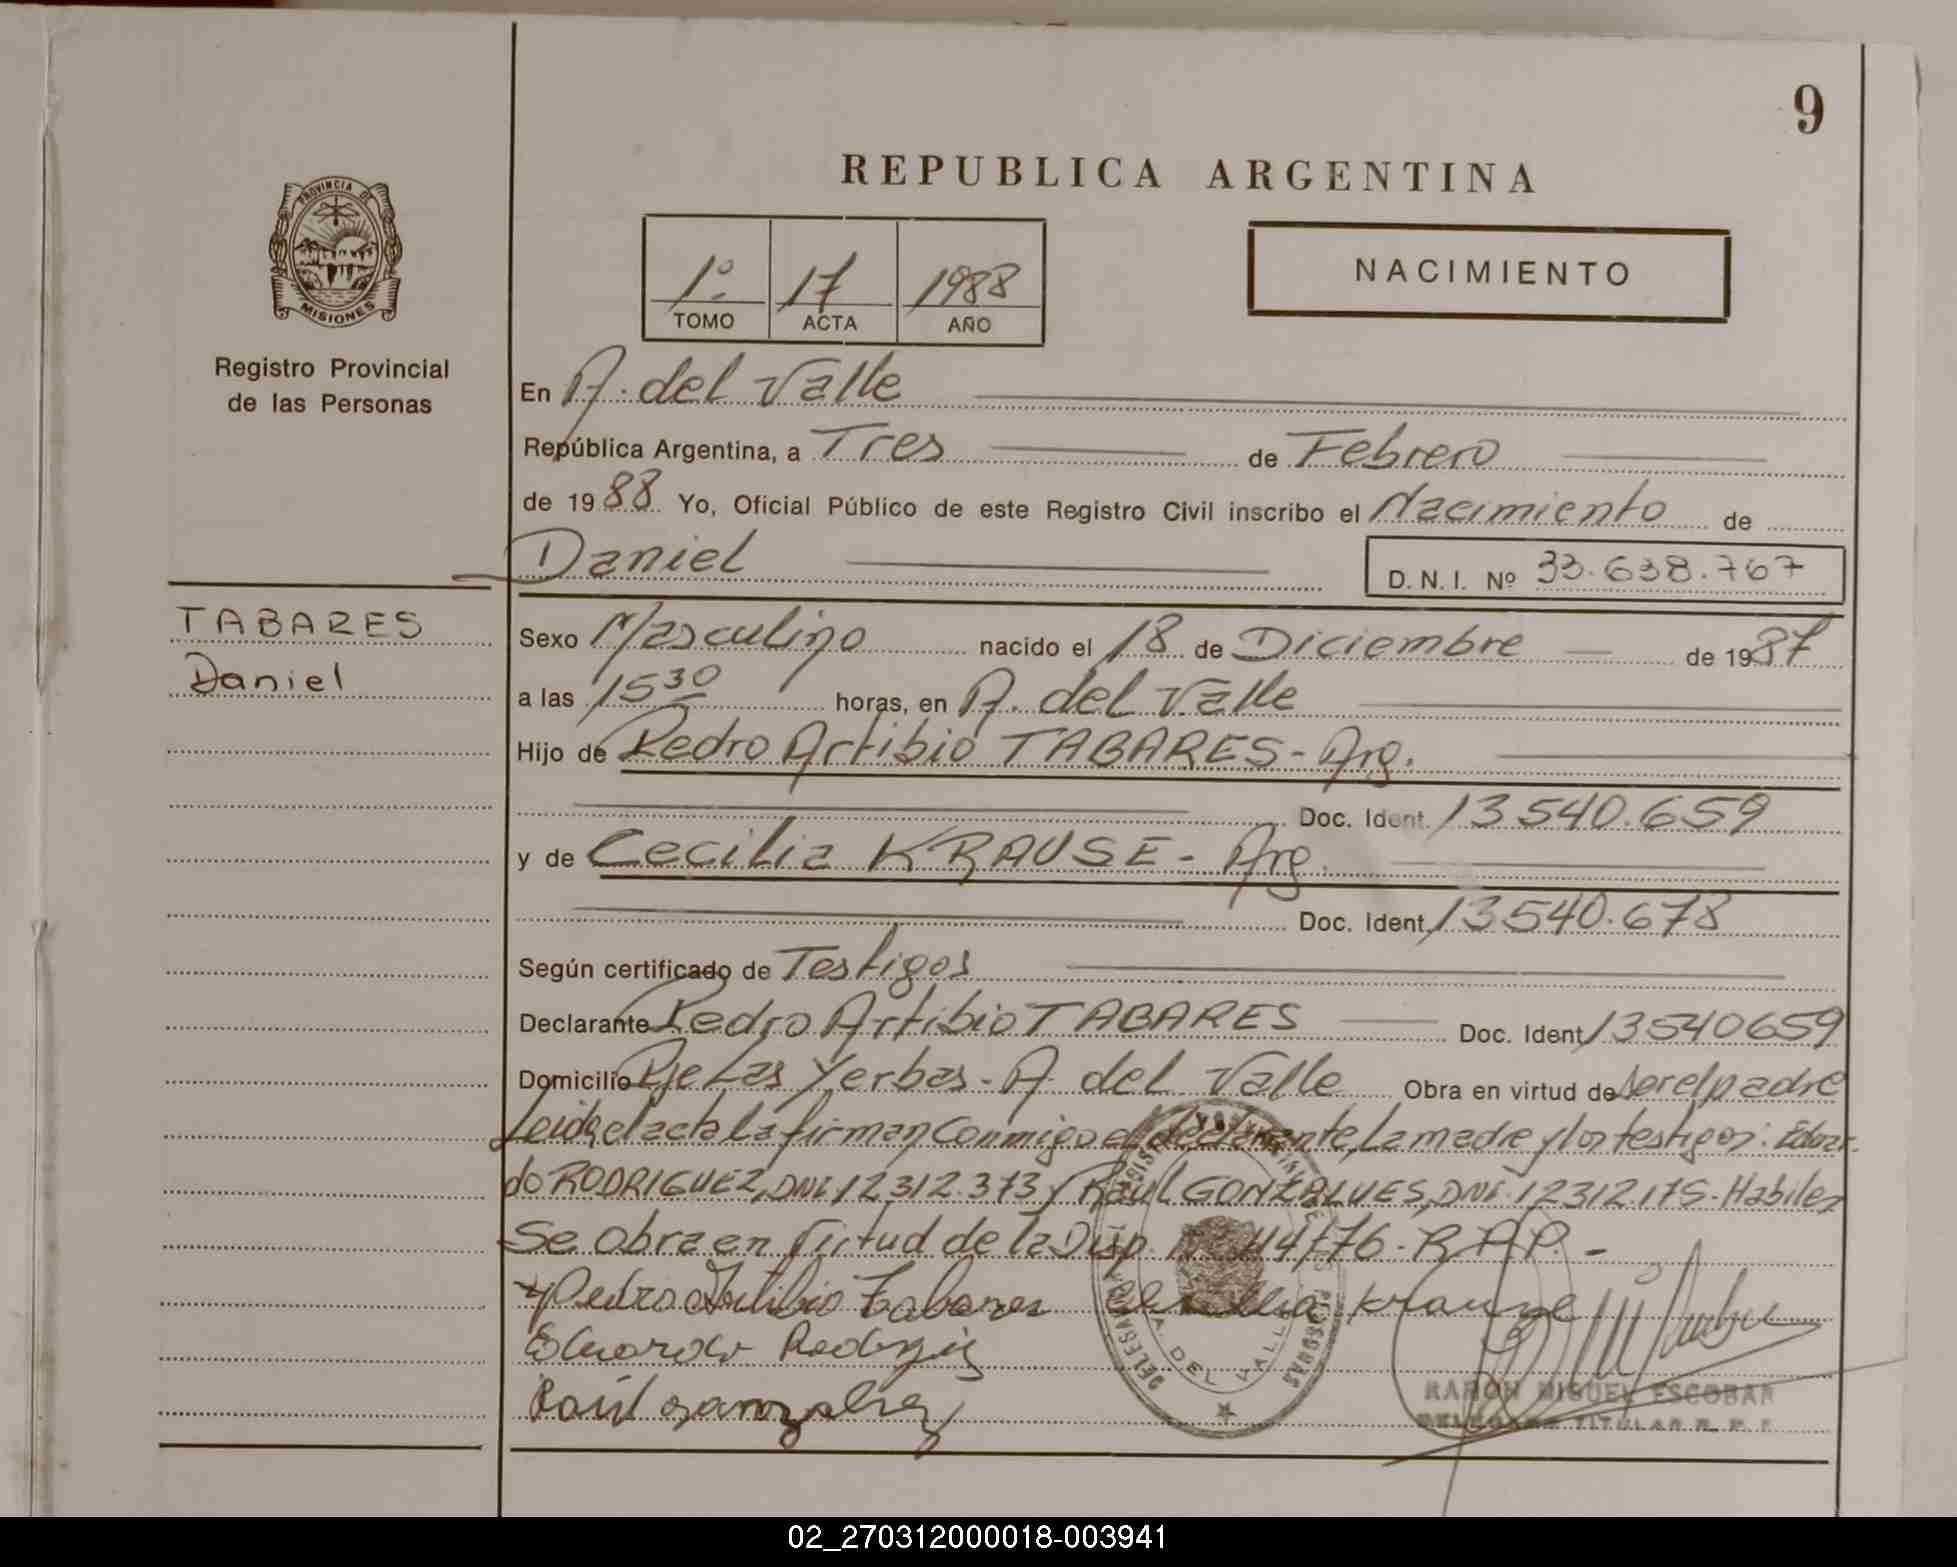 9
REPUBLICA ARGENTINA
PROVINCIA DE
MISIONES
Registro Provincial
de las Personas
1º 17 1988
TOMO ACTA AÑO
NACIMIENTO
En A. del Valle
República Argentina, a Tres de Febrero
de 1988 Yo, Oficial Público de este Registro Civil inscribo el Nacimiento de
Daniel D.N.I. Nº 33.638.767
TABARES
Daniel
Sexo Masculino nacido el 18 de Diciembre de 1987
a las 15 30 horas, en A. del Valle
Hijo de Pedro Artibio TABARES - Arg.
Doc. Ident. 13540.659
y de Cecilia KRAUSE - Arg.
Doc. Ident. 13540.678
Según certificado de Testigos
Declarante Pedro Artibio TABARES Doc. Ident. 13540659
Domicilio Pje Las Yerbas - A. del Valle Obra en virtud de ser el padre
Leida el acta la firman conmigo el declarante, la madre y los testigos: Eduar-
do RODRIGUEZ, DNI. 12312.373 y Raul GONZALVES, DNI. 12312.175 - Habiles
Se obra en virtud de la Disp. 44/76 - R.P.P. -
Pedro Artibio Tabares Krause
Eduardo
Raúl
DEL VALLE
RAMON MIGUEL ESCOBAR
DELEGADO TITULAR R. P. P.
02_270312000018-003941